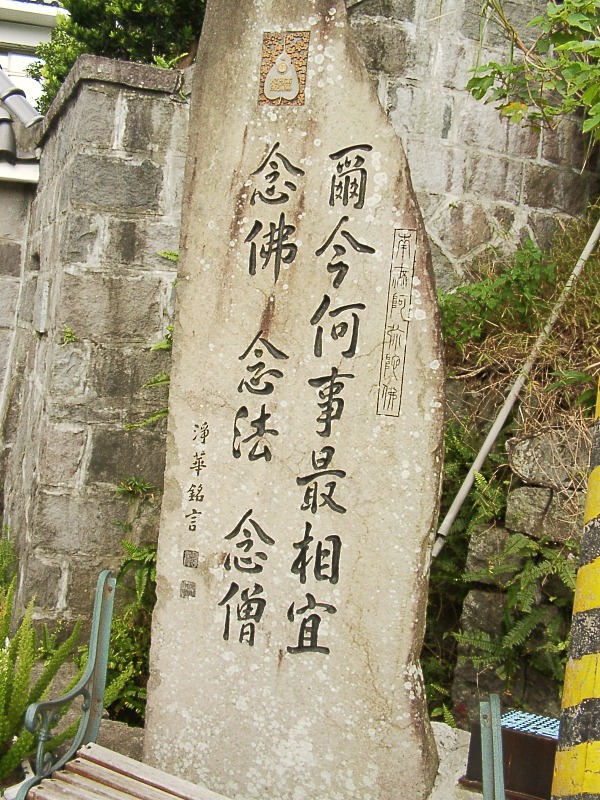 南無阿彌陀佛
爾今何事最相宜
念佛 念法 念僧
淨華銘言